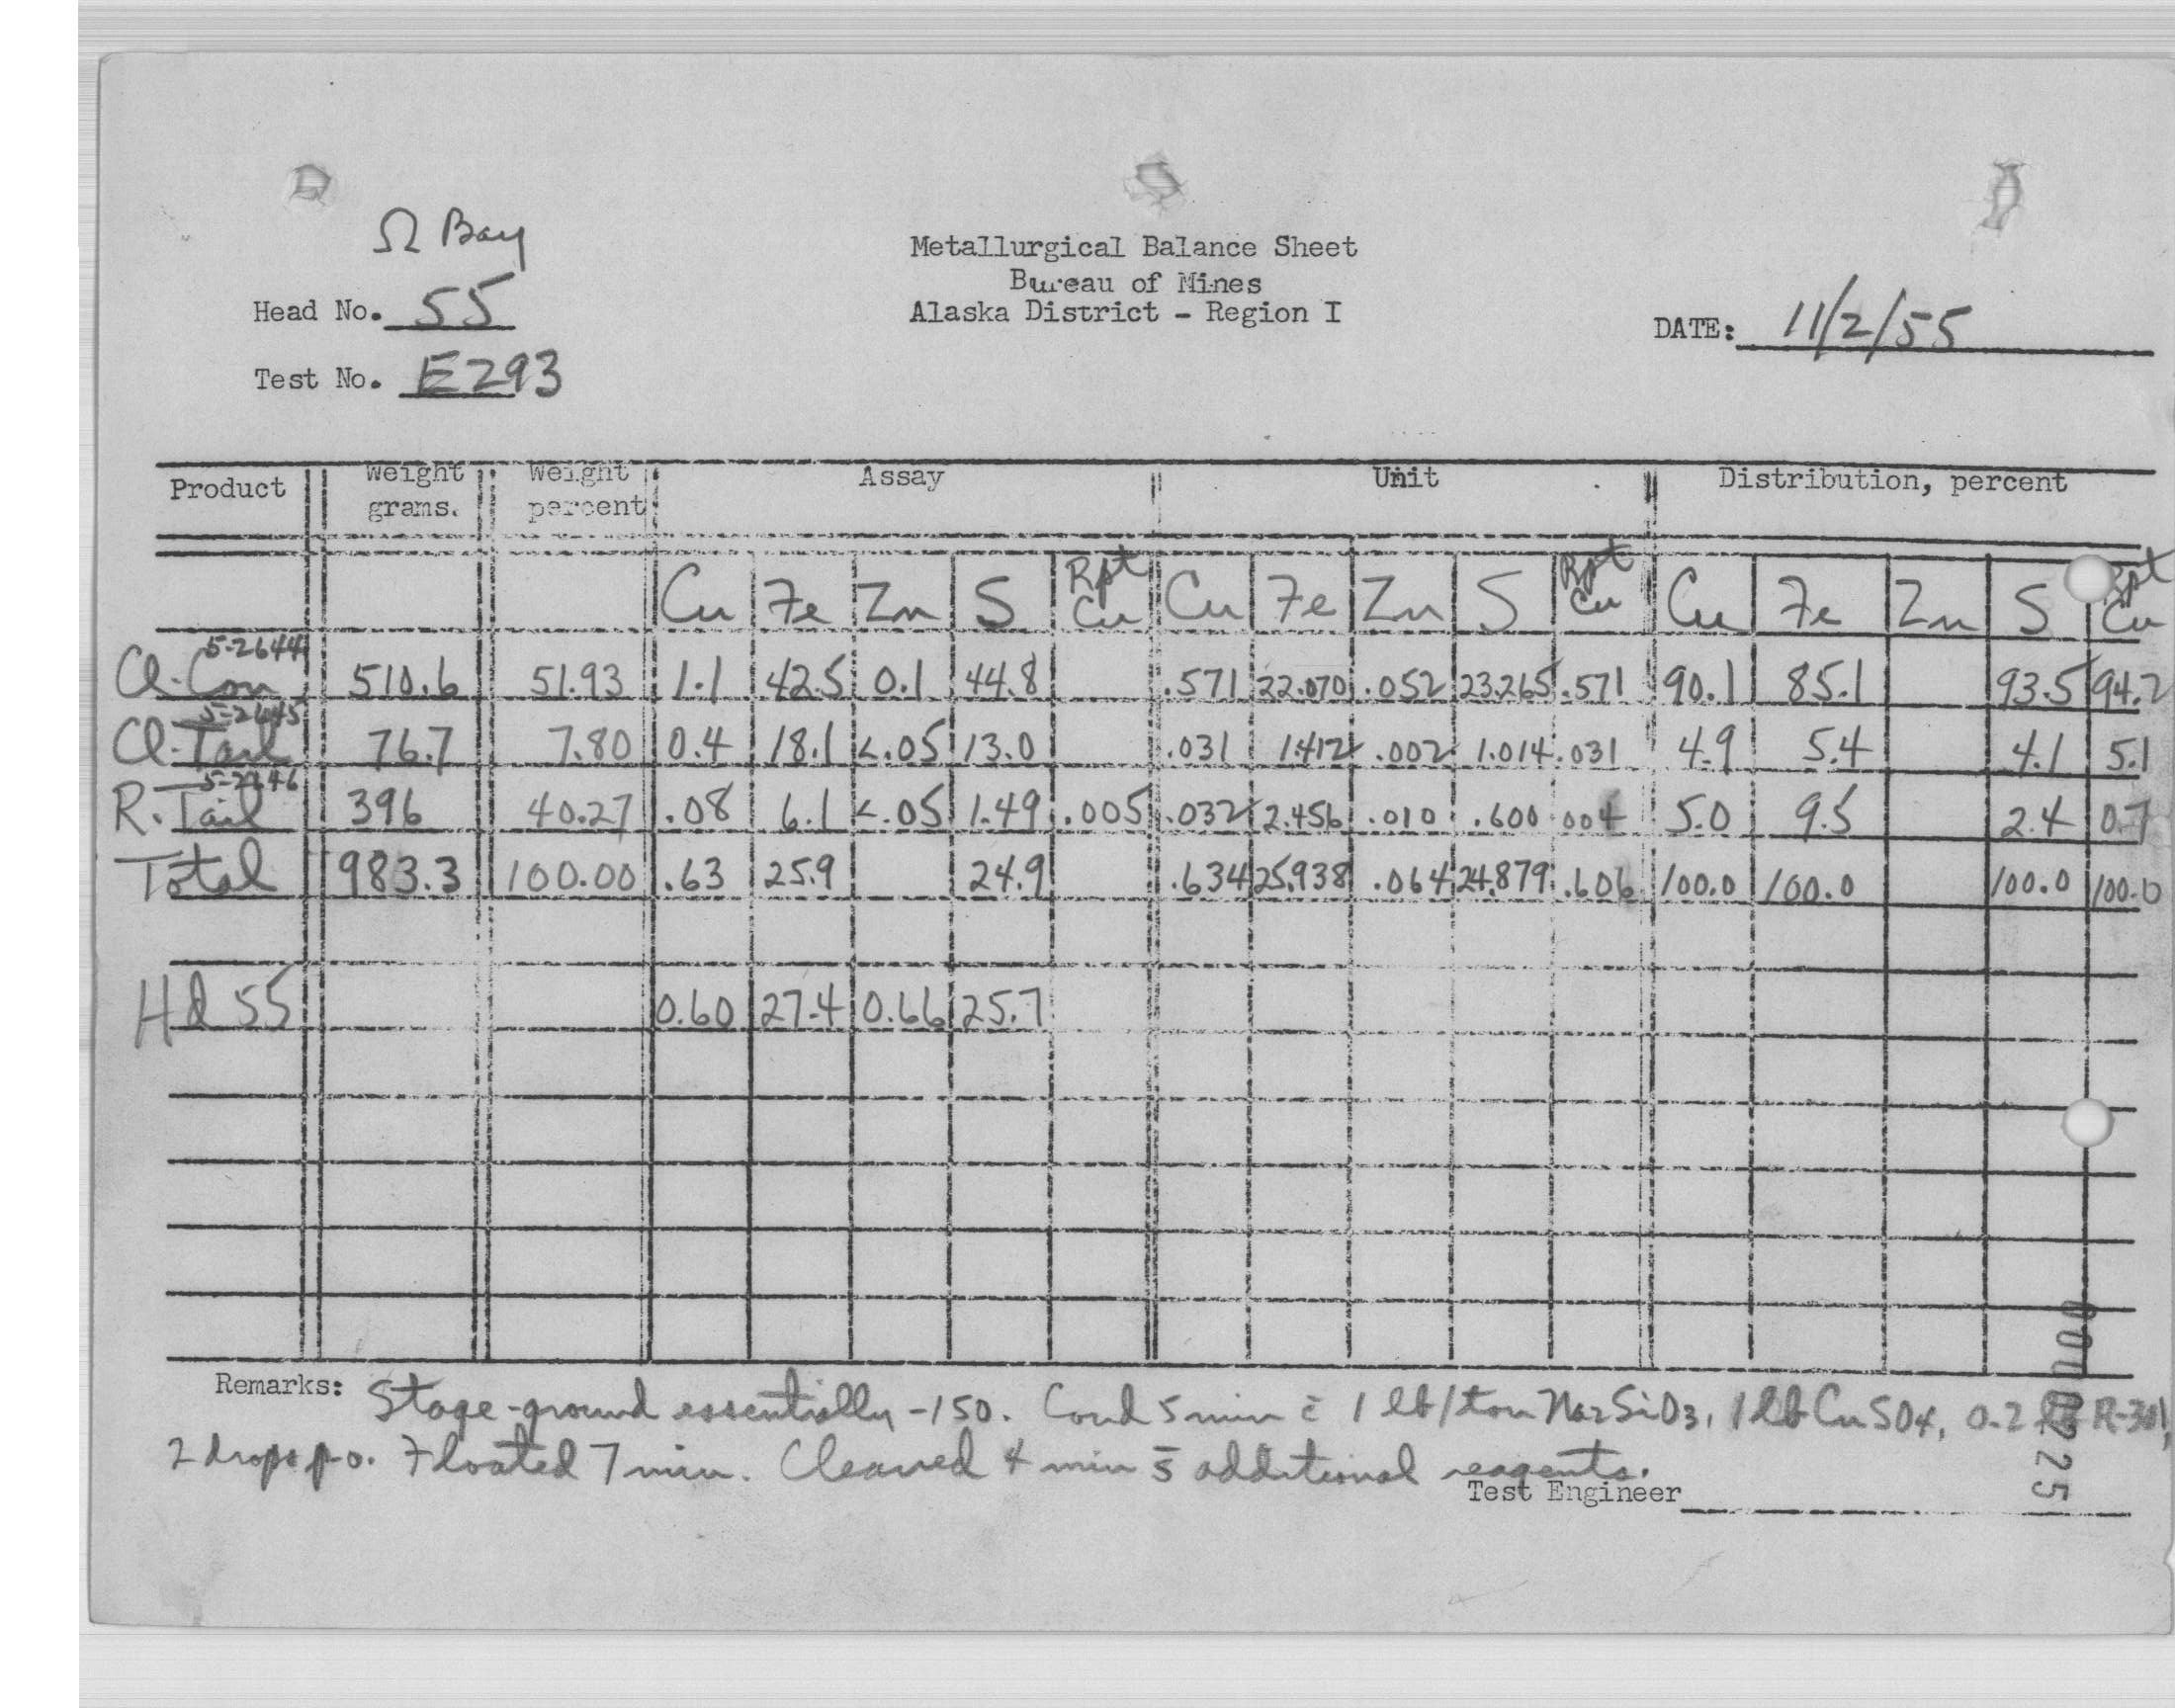 Ω Bay
Metallurgical Balance Sheet
Bureau of Mines
Alaska District - Region I
Head No. 55
DATE: 11/2/55
Test No. E293
Product Weight grams. Weight percent Assay Unit Distribution, percent
Cu Fe Zn S Rpt Cu Cu Fe Zn S Rpt Cu Cu Fe Zn S Rpt Cu
5-2644
Cl. Con 510.6 51.93 1.1 42.5 0.1 44.8 .571 22.070 .052 23.265 .571 90.1 85.1 93.5 94.2
5-2645
Cl. Tail 76.7 7.80 0.4 18.1 <.05 13.0 .031 1.412 .002 1.014 .031 4.9 5.4 4.1 5.1
5-2646
R. Tail 396 40.27 .08 6.1 <.05 1.49 .005 .032 2.456 .010 .600 .004 5.0 9.5 2.4 0.7
Total 983.3 100.00 .63 25.9 24.9 .634 25.938 .064 24.879 .606 100.0 100.0 100.0 100.0
Hd 55 0.60 27.4 0.66 25.7
Remarks: Stage-ground essentially -150. Cond 5 min c̄ 1 lb/ton Na2SiO3, 1 lb CuSO4, 0.2 R-301,
2 drops p-o. Floated 7 min. Cleaned 4 min s̄ additional reagents.
Test Engineer